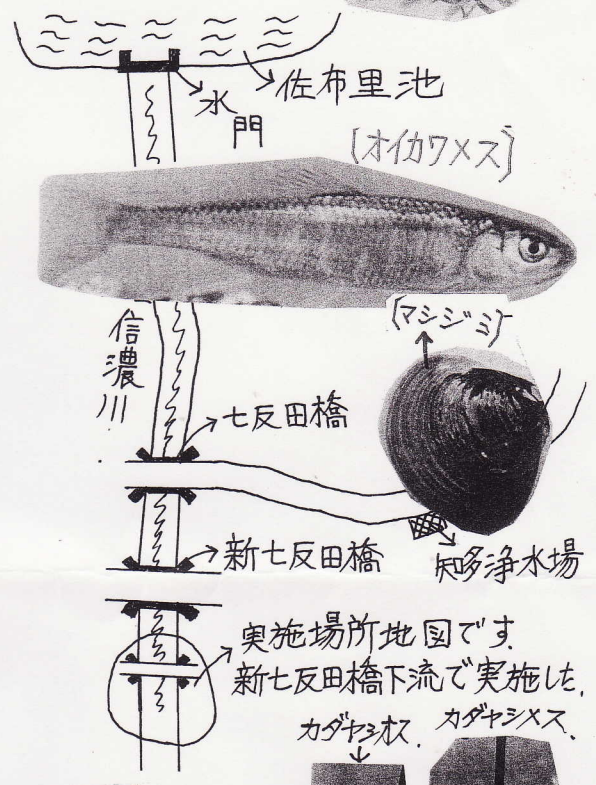 佐布里池
水門
(オイカワメス)
信濃川
(マシジミ)
七反田橋
新七反田橋
知多浄水場
実施場所地図です.
新七反田橋下流で実施した.
カダヤシオス.
カダヤシメス.